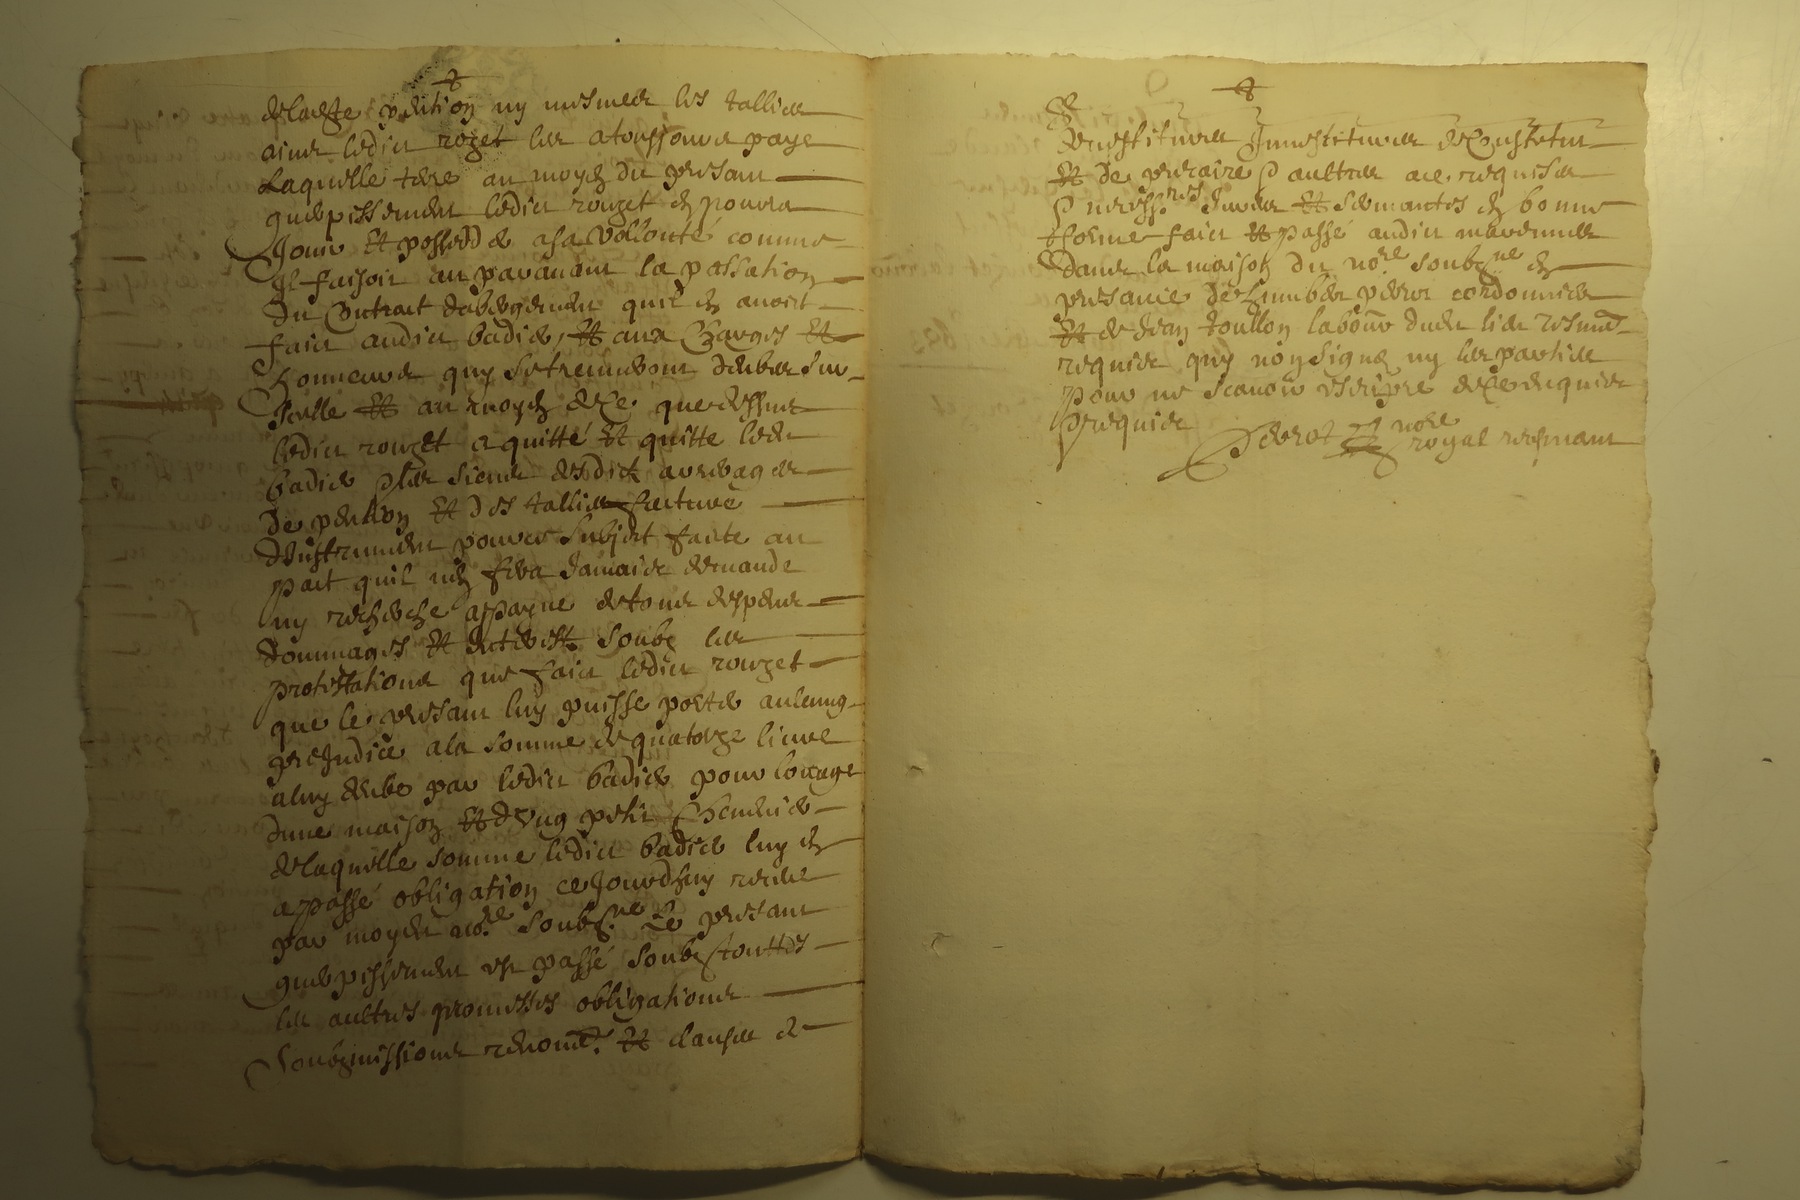 de ladte pention ny mesmes les tallies
ains ledict roget les a tousjours paye
Laquelle terre au moyen du presant
guerpissement ledict rouget en pourra
Jouir et posseder a sa vollonté comme
Il faisoit au paravant la passation
du Contrat dabergement quil en avoit
faict audict badier, et aux Charges et
honneurs quy se treuveront deubes sur
Icelle et au moyen de Ce que dessus
ledict rouget a quitté et quitte ledict
badier des arreyrages
de pention et des tallies
Dinstrument pouvoir subject faicte au
pact quil nen sera Jamais demande
ny recherche a payne de tous despens
dommages et interestz soubz les
protestations que faict ledict rouget
que le presant luy puisse porter aulcung
preJudice a la somme de quatorze livres
a luy deube par ledict badier pour louage
dune maison et dung petit
de laquelle somme ledict badier luy en
a passé obligation ce Jourdhuy receue
par moydict nore. soubzne. Le presant
guerpissement est passé soubz touttes
les aultres promesses obligations
soubzmissions renont. et clauses de
Investitures de Constitut
et de precaire aultres a ce requises
necessres. Jurees et sermantes en bonne
forme faict et passé audict
dans la maison du nore soubzne en
presance de perrot cordonnier
et de Jean toullon labour dudt lieu tesmoins
requis quy nont signe ny les parties
pour ne scavoir escripre de Ce enquis
requis
Perrot nore royal